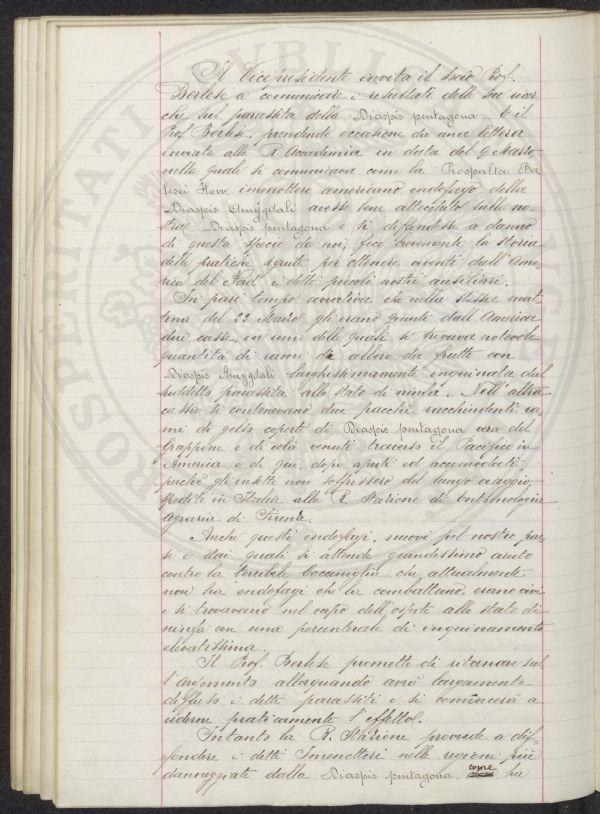 Il Vicepresidente invita il Socio Prof.
Berlese a comunicare i resultati delle sue ricer
che sul parassita della Diaspis pentagona - E il
Prof. Berlese, prendendo occasione da una lettera
inviata alla R. Accademia in data del 9 Marzo
nella quale si comunicava come la Prospalta Ber
lesei How. imenottero americano endofago della
Diaspis Amygdali avesse bene attecchito sulla no
stra Diaspis pentagona e si diffondesse a danno
di questa specie da noi, fece brevemente la storia
delle pratiche seguite per ottenere viventi dall'Ame
rica del Nord i detti piccoli nostri ausiliari.
In pari tempo avvertiva che nella stessa mat
tina del 22 Marzo gli erano giunte dall'America
due casse, in una delle quali si trovava notevole
quantità di rami di albero da frutto con
Diaspis Amygdali larghissimamente inquinata dal
suddetto parassita allo stato di ninfa. Nell'altra
cassa si contenevano due pacchi racchiudenti ra
mi di gelso coperti di Diaspis pentagona ora del
Giappone e di colà venuti traverso il Pacifico in
America, e di qui, dopo aperti ed accomodati,
perchè gli insetti non soffrissero del lungo viaggio,
spediti in Italia alla R. Stazione di Entomologia
agraria di Firenze.
Anche questi endofagi, nuovi pel nostro pae
se e dai quali si attende grandissimo aiuto
contro la terribile Cocciniglia che attualmente
non ha endofagi che la combattano, erano vivi
e si trovavano nel corpo dell'ospite allo stato di
ninfa con una percentuale di inquinamento
elevatissima.
Il Prof. Berlese promette di ritornare sul
l'argomento allorquando avrà largamente
diffuso i detti parassiti e si comincerà a
vederne praticamente l'effetto.
Intanto la R. Stazione provvede a dif=
fondere i detti Imenotteri nelle regioni più
danneggiate dalla Diaspis pentagona, come ha
PROSPERITATI PVBLICAE